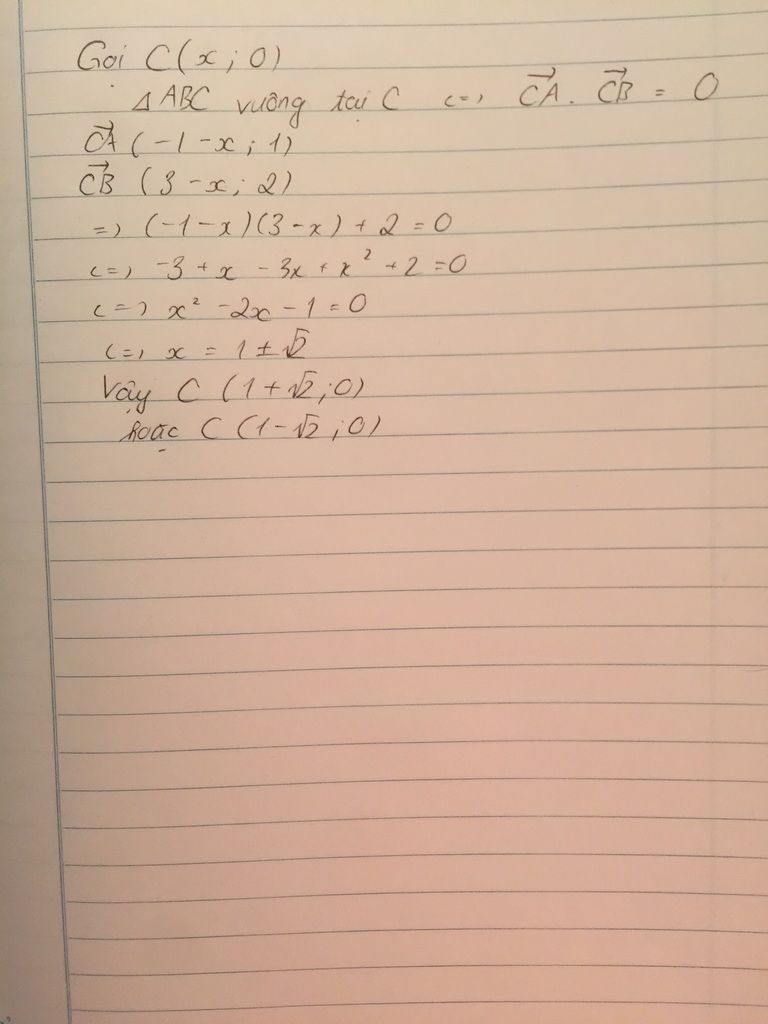 Gọi C(x; 0)
△ABC vuông tại C <=> $\overrightarrow{CA}$. $\overrightarrow{CB}$ = 0
$\overrightarrow{CA}$ (-1-x; 1)
$\overrightarrow{CB}$ (3-x; 2)
=> (-1-x)(3-x) + 2 = 0
<=> -3 + x - 3x + x² + 2 = 0
<=> x² - 2x - 1 = 0
<=> x = 1 ± √2
Vậy C (1+√2; 0)
hoặc C (1-√2; 0)